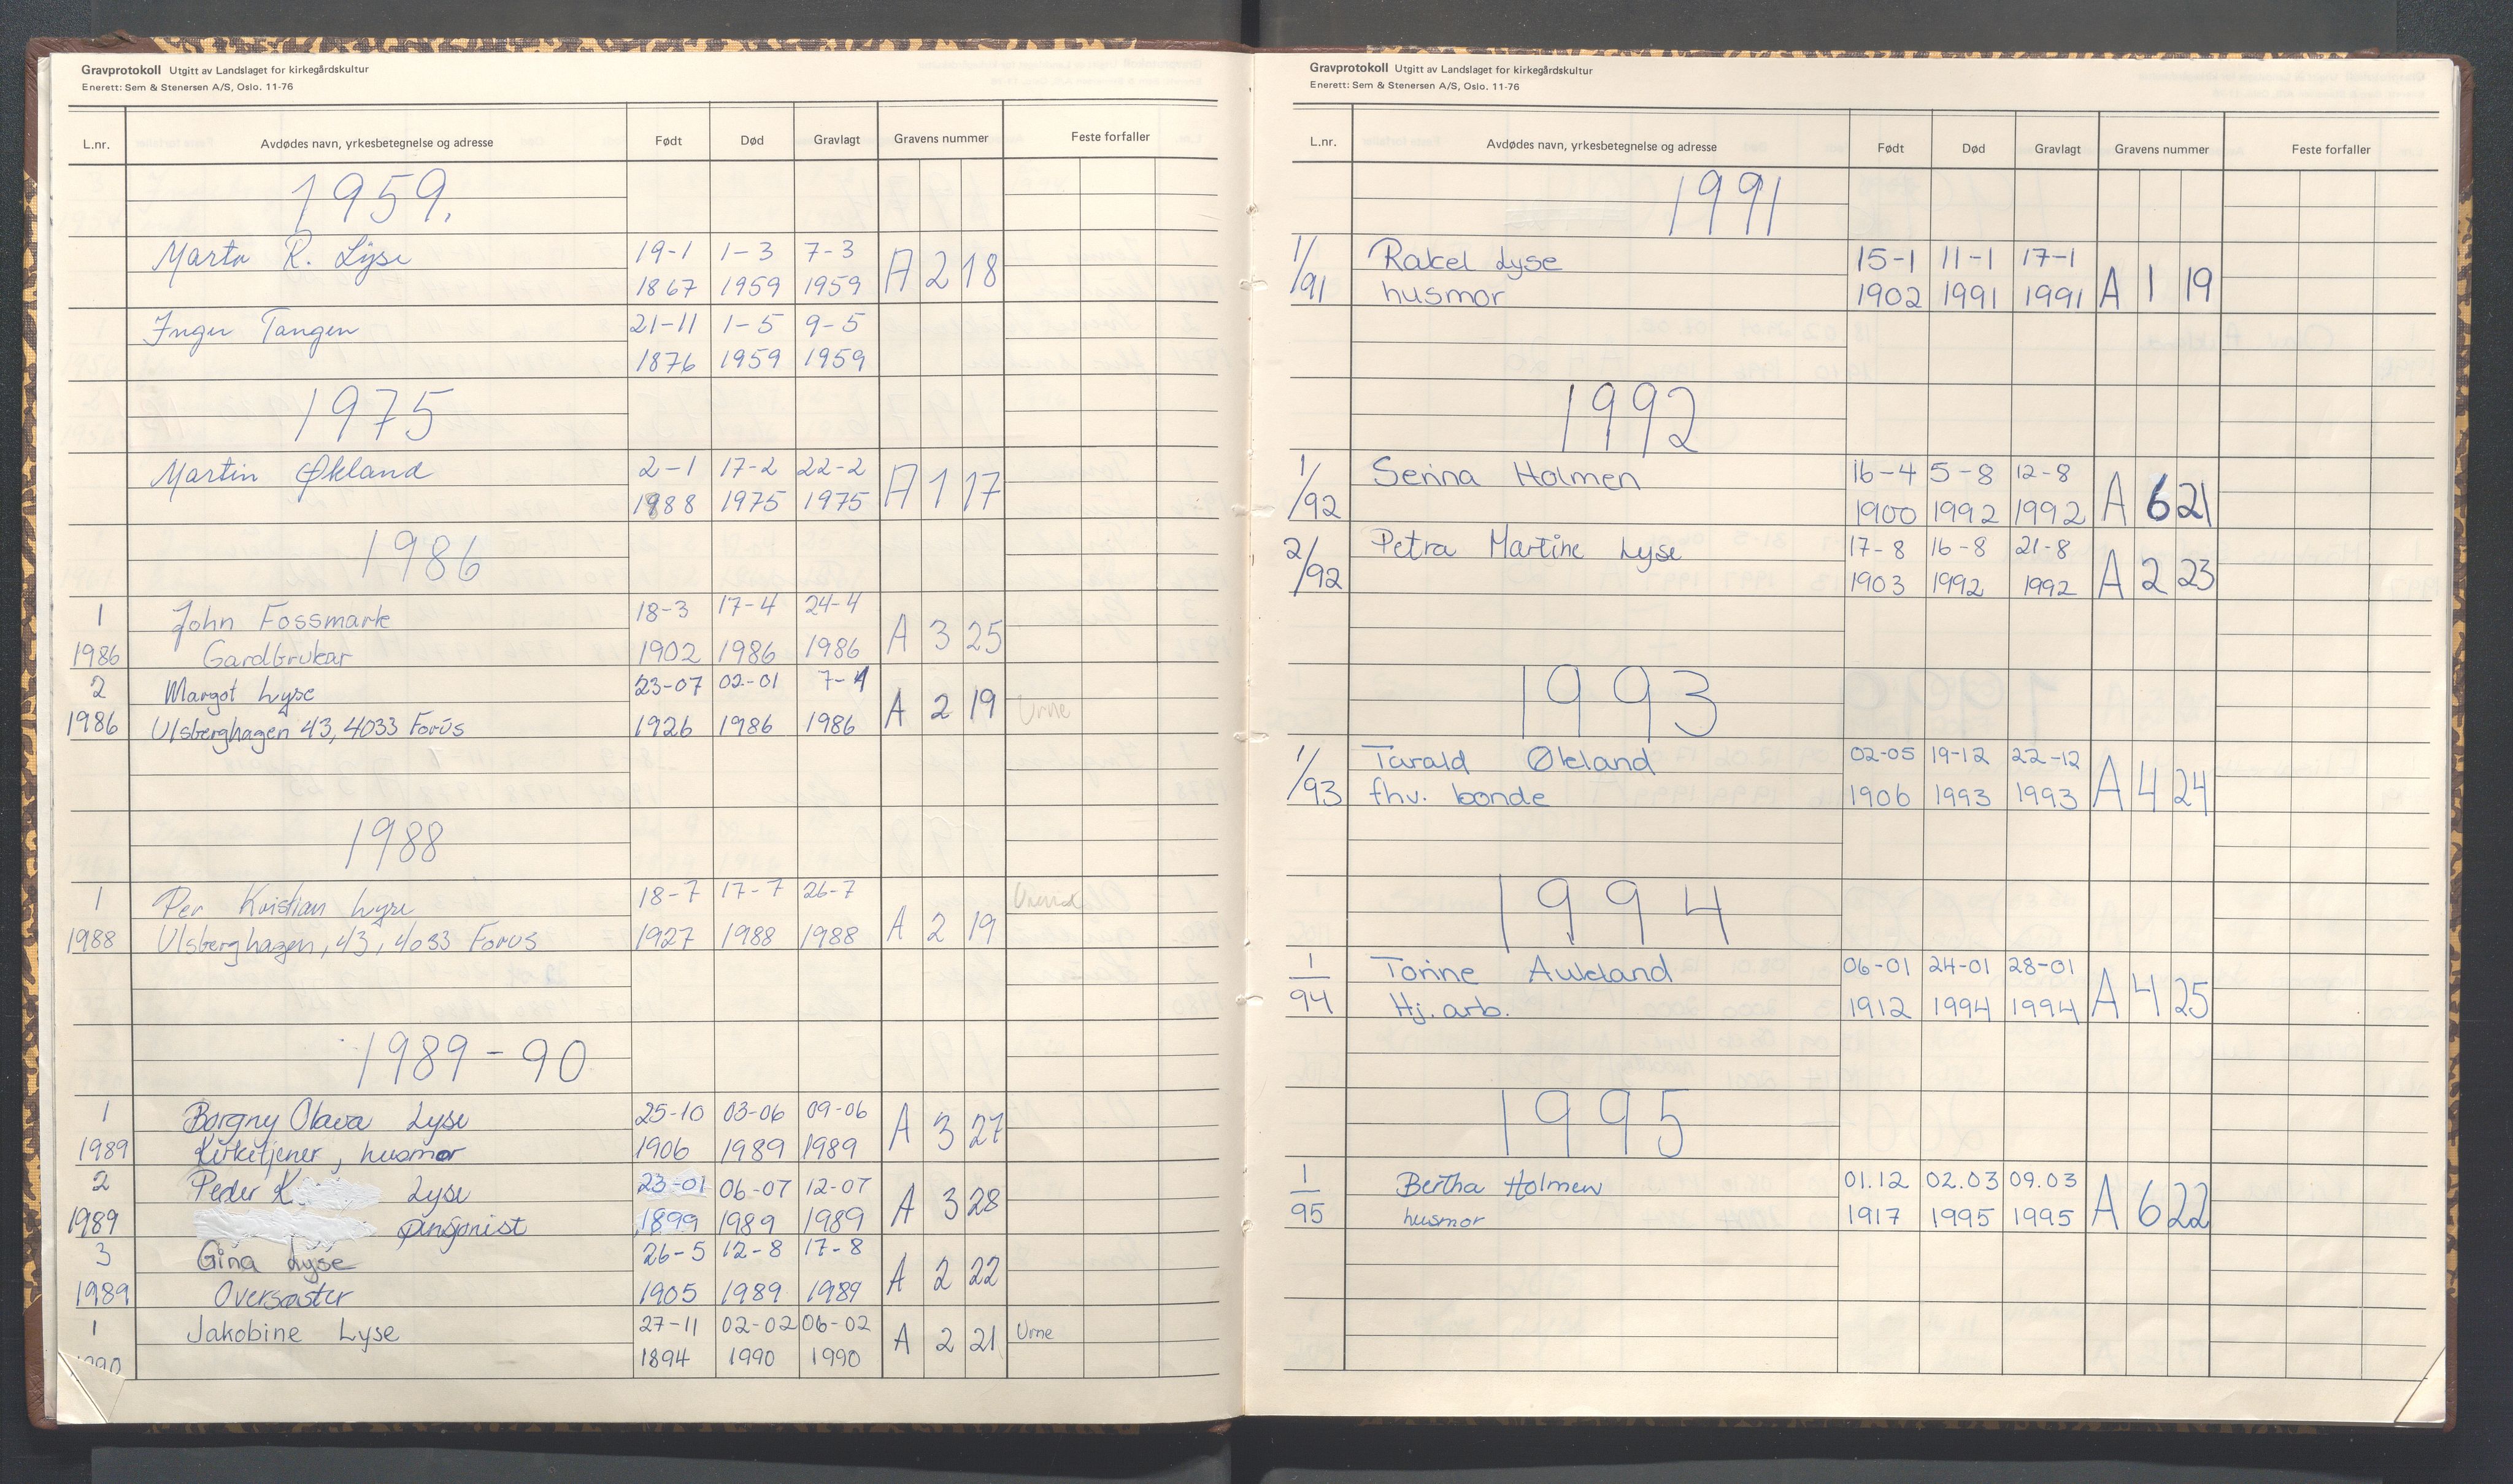 Gravprotokoll Utgitt av Landslaget for kirkegårdskultur
Enerett: Sem & Stenersen A/S, Oslo. 11-76
L.nr. Avdødes navn, yrkesbetegnelse og adresse Født Død Gravlagt Gravens nummer Feste forfaller
1959.
Marta R. Lyse 19-1 1-3 7-3 A 2 18
1867 1959 1959
Inger Tangen 21-11 1-5 9-5
1876 1959 1959
1975
Martin Økland 2-1 17-2 22-2 A 1 17
1888 1975 1975
1986
1 John Fossmark 18-3 17-4 24-4 A 3 25
1986 Gardbrukar 1902 1986 1986
2 Margot Lyse 23-07 02-01 7-1 A 2 19 Urne
1986 Ulsberghagen 43, 4033 Forus 1926 1986 1986
1988
1 Per Kristian Lyse 18-7 17-7 26-7 A 2 19
1988 Ulsberghagen, 43, 4033 Forus 1927 1988 1988
1989-90
1 Borgny Olava Lyse 25-10 03-06 09-06 A 3 27
1989 Kirketjener, husmor 1906 1989 1989
2 Peder K Lyse 23-01 06-07 12-07 A 3 28
1989 pensjonist 1899 1989 1989
3 Gina Lyse 26-5 12-8 17-8 A 2 22
1989 Oversøster 1905 1989 1989
1 Jakobine Lyse 27-11 02-02 06-02 A 2 21 Urne
1990 1894 1990 1990
Gravprotokoll Utgitt av Landslaget for kirkegårdskultur
Enerett: Sem & Stenersen A/S, Oslo. 11-76
L.nr. Avdødes navn, yrkesbetegnelse og adresse Født Død Gravlagt Gravens nummer Feste forfaller
1991
1/91 Rakel Lyse 15-1 11-1 17-1 A 1 19
husmor 1902 1991 1991
1992
1/92 Serina Holmen 16-4 5-8 12-8 A 6 21
1900 1992 1992
2/92 Petra Martine Lyse 17-8 16-8 21-8 A 2 23
1903 1992 1992
1993
1/93 Tarald Økland 02-05 19-12 22-12 A 4 24
fhv. bonde 1906 1993 1993
1994
1/94 Torine Aukland 06-01 24-01 28-01 A 4 25
Hj. arb. 1912 1994 1994
1995
1/95 Bertha Holmen 01.12 02.03 09.03 A 6 22
husmor 1917 1995 1995